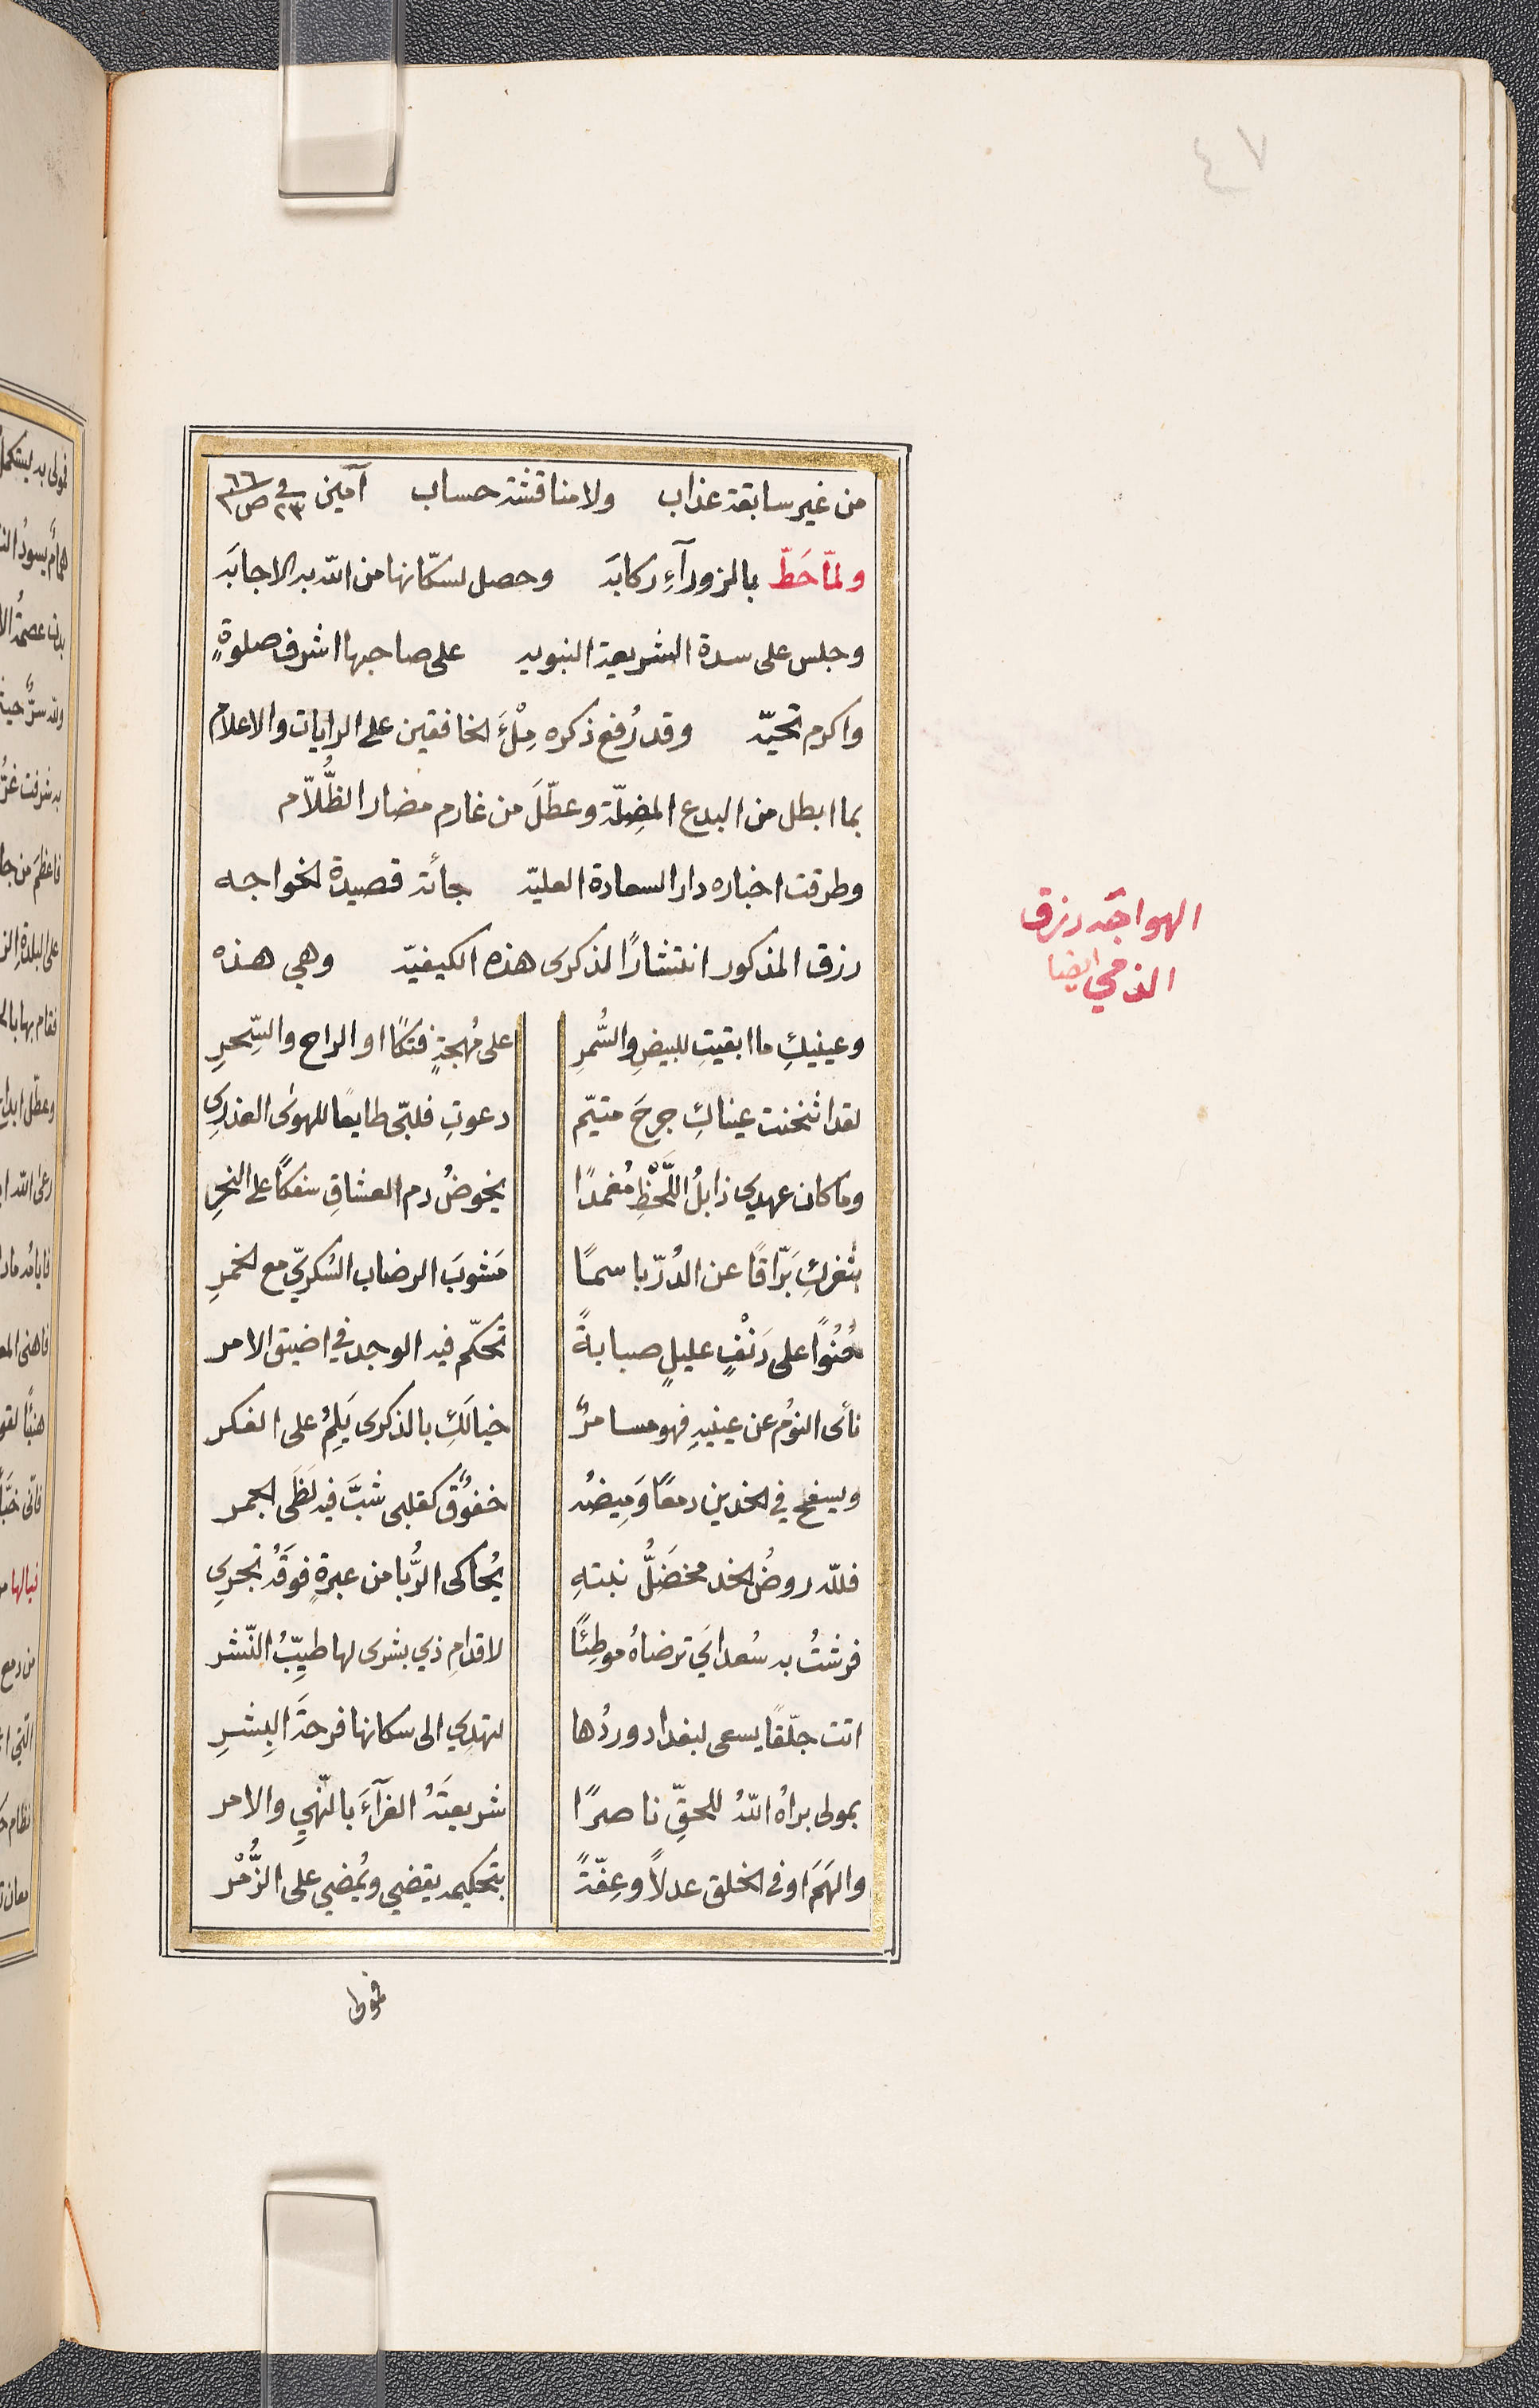 ٤٧
من غير سابقة عذاب ولا مناقشة حساب آمين في ٢٣ ص ٦٦
ولمّا حَطّ بالزورآءِ ركابَه وحصل لسكّانها من اللّه به الاجابَه
وجلس على سدة الشريعة النبويه على صاحبها اشرف صلوةٍ
واكرم تحيّه وقد رُفع ذكره مِلْءَ الخافقين على الرايات والاعلام
بما ابطل من البدع المضِلّة وعطّلَ من غارم مضار الظُّلاّم
وطرقت اخباره دار السعادة العليّه جأته قصيدة الخواجه
رزق المذكور انتشارًا لذكرى هذه الكيفيّه وهي هذه
الهواجه رزق
الذمي ايضا
وعينيكِ ما ابقيتِ للبيضِ والسُّمرِ على مُهجةٍ فتكًا او الراح والسِّحرِ
لقد اثخنت عيناكِ جرحَ متيّم دعوتِ فلبّى طايعًا للهوى العذري
وما كان عهدي ذابلُ اللَّحْظِ مُغمدًا يخوضُ دم العشاقِ سفكًا على النحرِ
بثغركِ بَرّاقًا عن الدُرّ باسمًا مَشوبَ الرضاب السُكريّ مع الخمرِ
حُنُوًا على دَنْفٍ عليلٍ صبابةً تحكّم فيه الوجد في اضيق الامر
نأى النومُ عن عينيهِ فهو مسامرٌ خيالَكِ بالذكرى يَلِمُ على الفكر
ويسفح في الخدين دمعًا وَمِيضُه خفوُقٌ كقلبى شبَّ فيه لَظَى الجمر
فللّه روضُ الخد مخضَلُّ نبتهِ يُحاكى الرُّبا من عبرةٍ فوقَهُ تجري
فرشتُ به سُعداىَ ترضاهُ موطِئًا لاقدامِ ذي بشرى لها طيِّبُ النّشر
اتت جلّقًا يسعى لبغداد وردُها لتهدي الى سكانها فرحةَ البِشرِ
بمولى براهُ اللّهُ للحقِّ ناصرًا شريعتَهُ الغرآءَ بالنّهيِ والامر
والهَمَ اوفى الخلق عدلاً وعِفّةً بتحكيمه يقضي ويُمضي على الزُّمْر